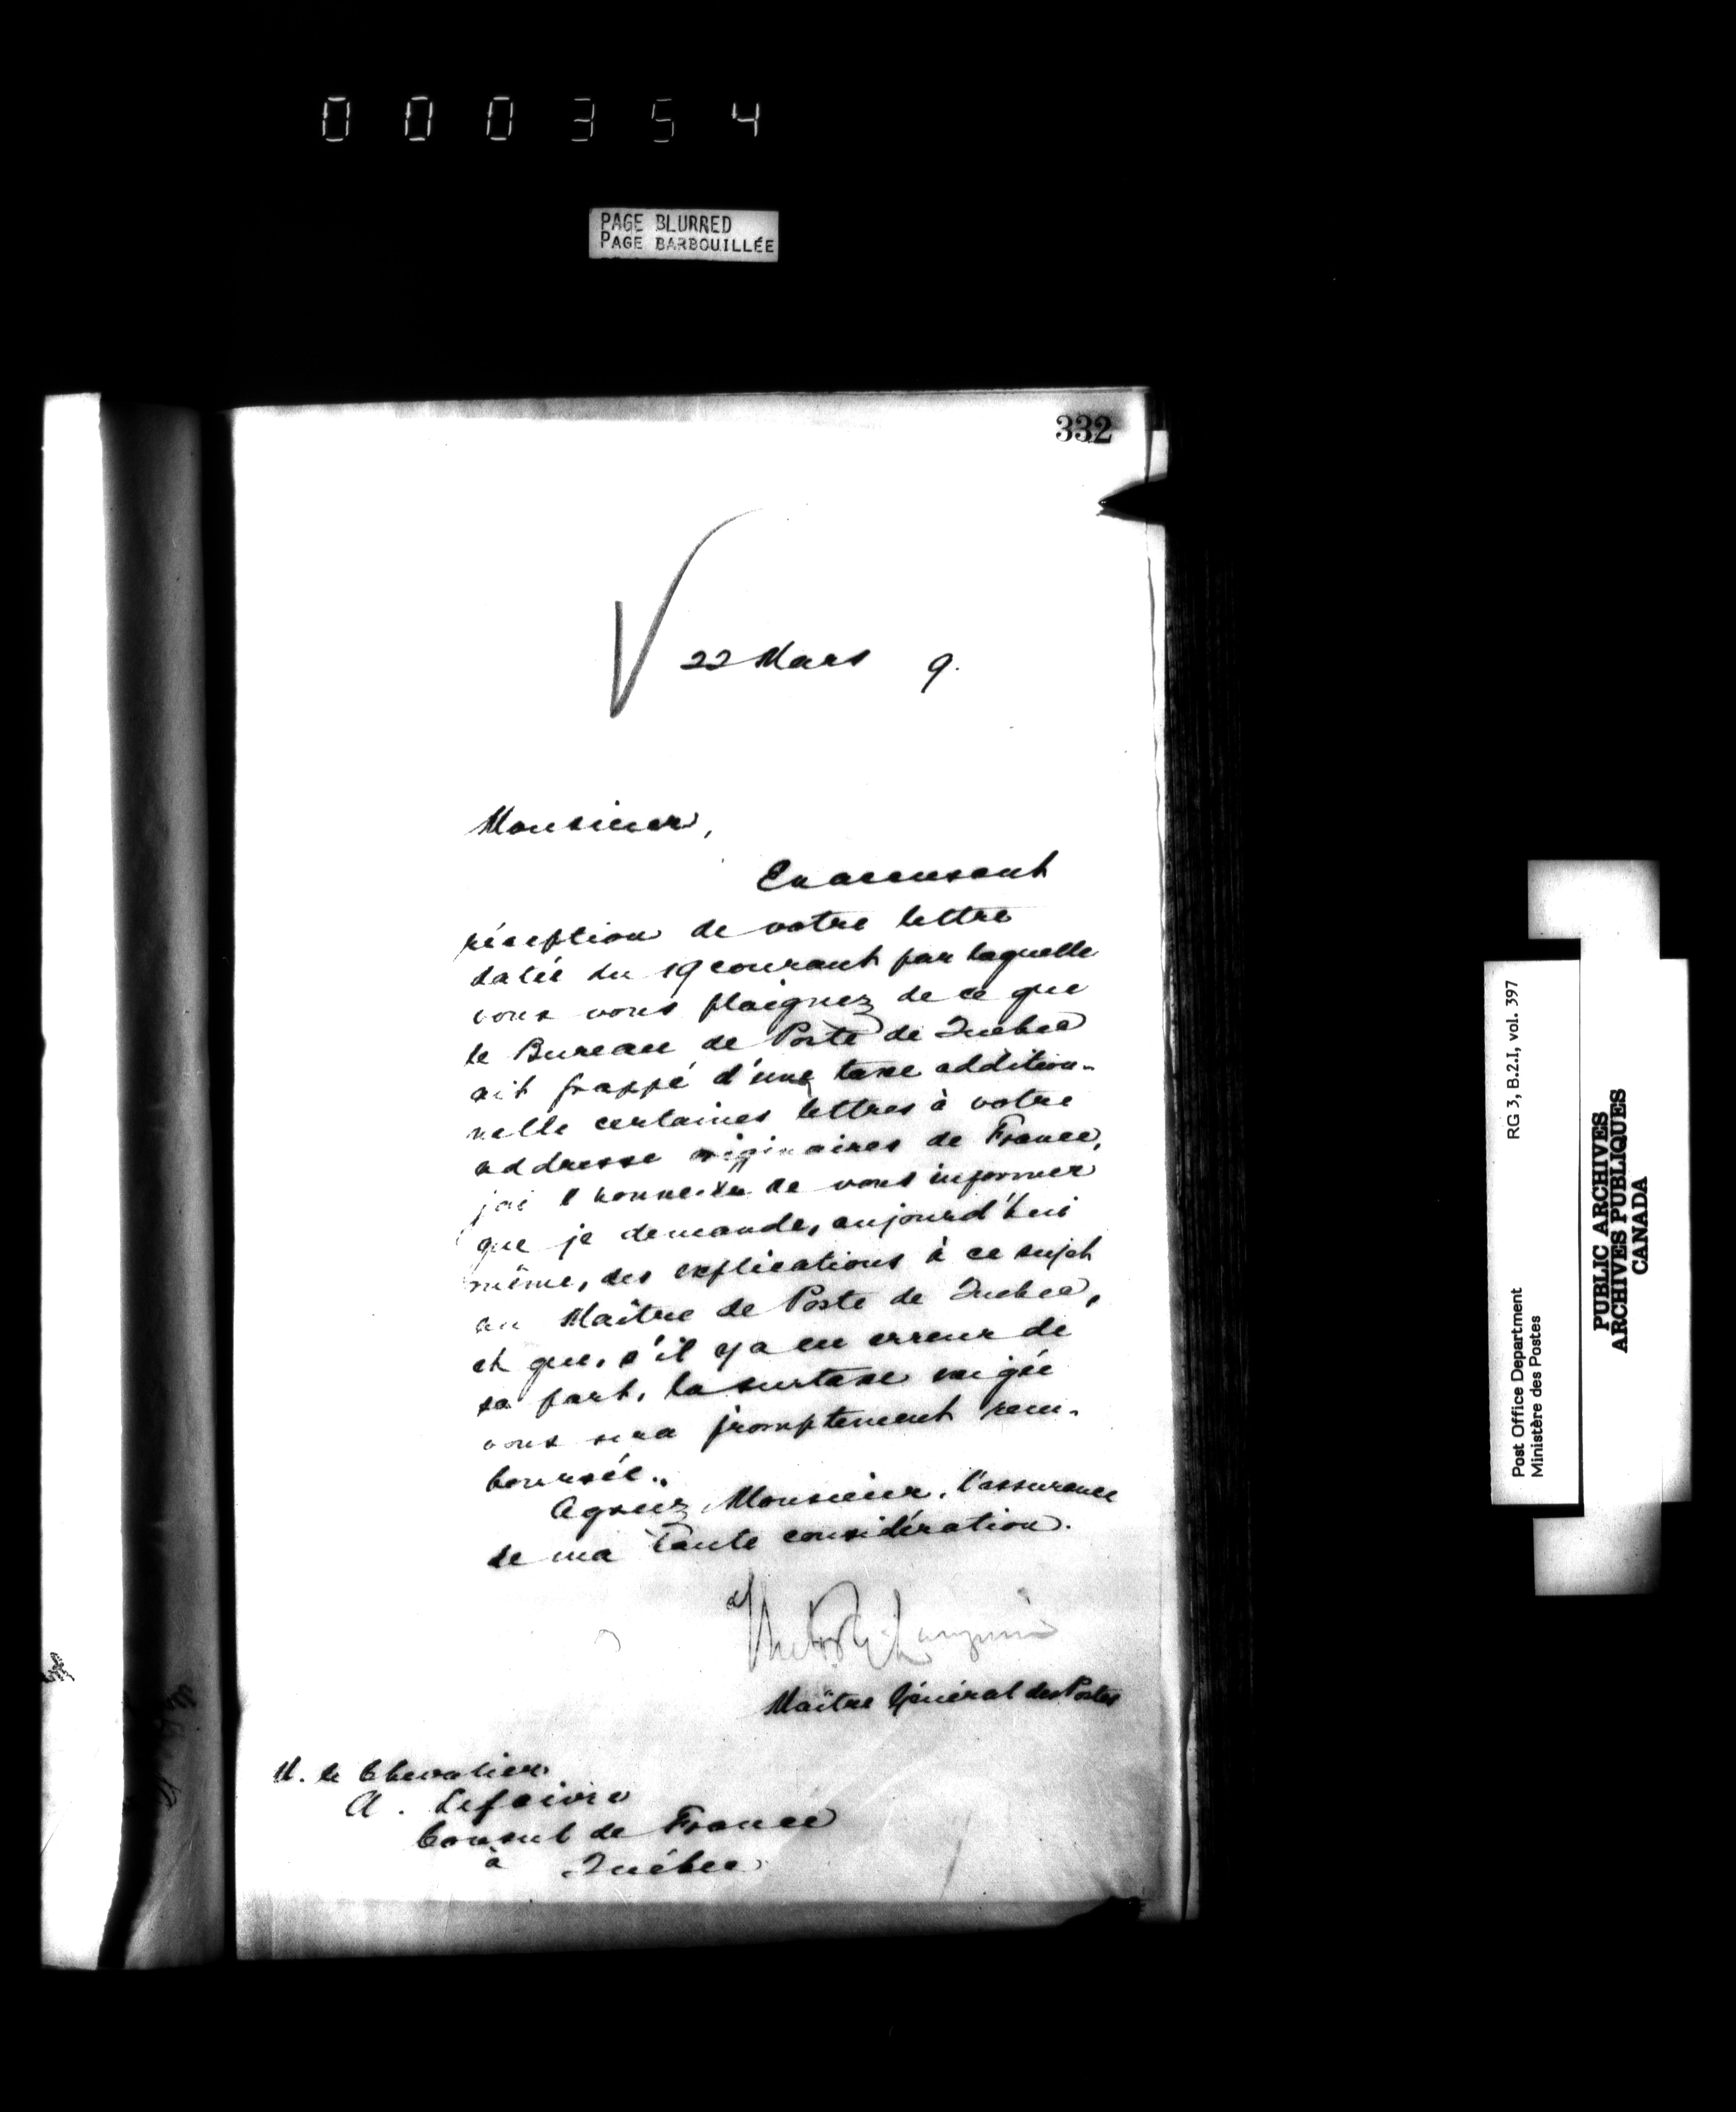 000354
PAGE BLURRED
PAGE BARBOUILLÉE
332
22 Mars 9.
Monsieur,
En accusant
réception de votre lettre
datée du 19 courant par laquelle
vous vous plaignez de ce que
le Bureau de Poste de Québec
ait frappé d'une taxe addition-
nelle certaines lettres à votre
addresse originaires de France,
j'ai l'honneur de vous informer
que je demande, aujourd'hui
même, des explications à ce sujet
au Maître de Poste de Québec,
et que, s'il y a eu erreur de
sa part, la surtaxe exigée
vous sera promptement rem-
boursée.
Agréez, Monsieur, l'assurance
de ma haute considération.
Maître Général des Postes
M. le Chevalier
A. Lefaivre
Consul de France
à Québec
Post Office Department RG 3, B.2.I, vol. 397
Ministère des Postes
PUBLIC ARCHIVES
ARCHIVES PUBLIQUES
CANADA